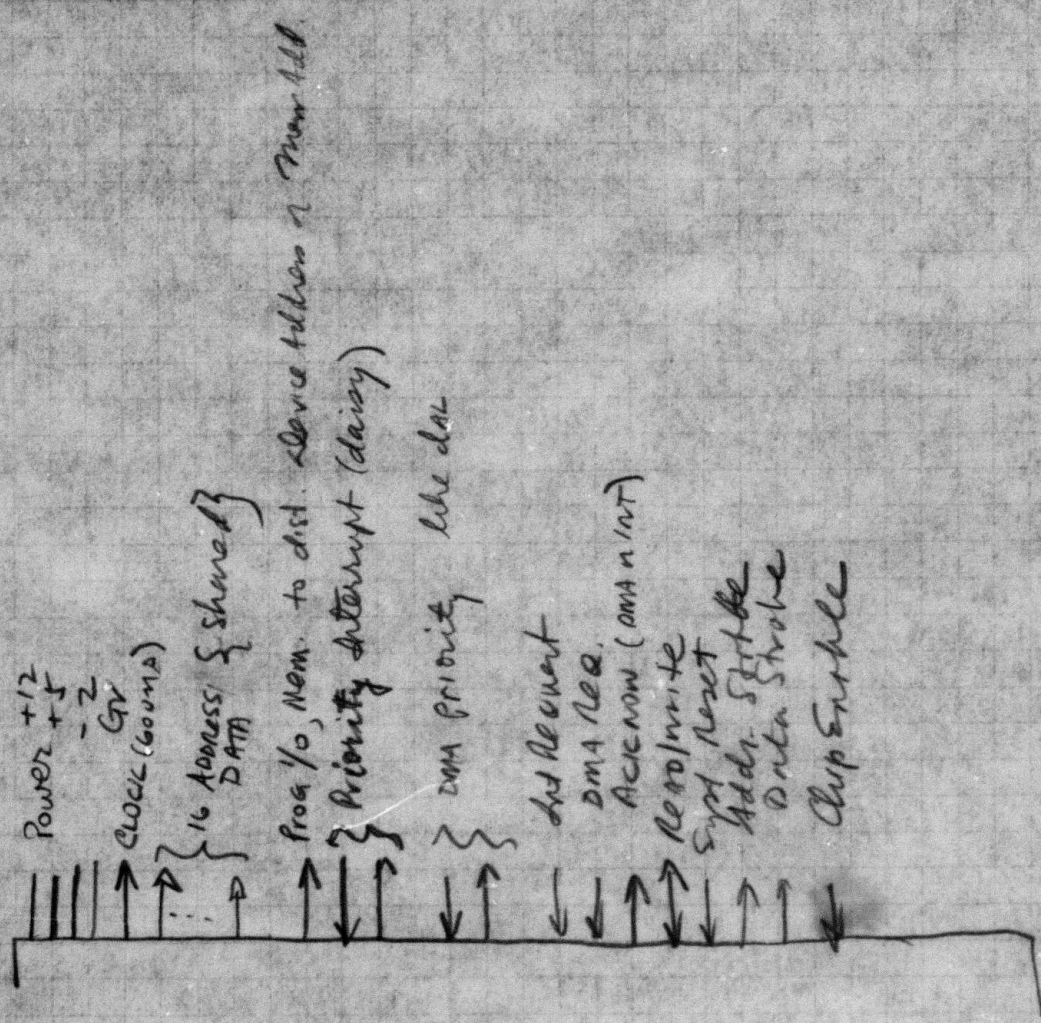 Power +12
+5
-2
Gr
CLOCK (600ns)
16 ADDRESS } Shared }
DATA
Prog I/O, Mem. to dist. Device Address or Mem Add.
Priority Interrupt (daisy)
DMA Priority
Int Request
DMA Req.
ACKNOW (DMA or INT)
READ/Write
Syst Reset
Addr. Strobe
Data Strobe
Chip Enable